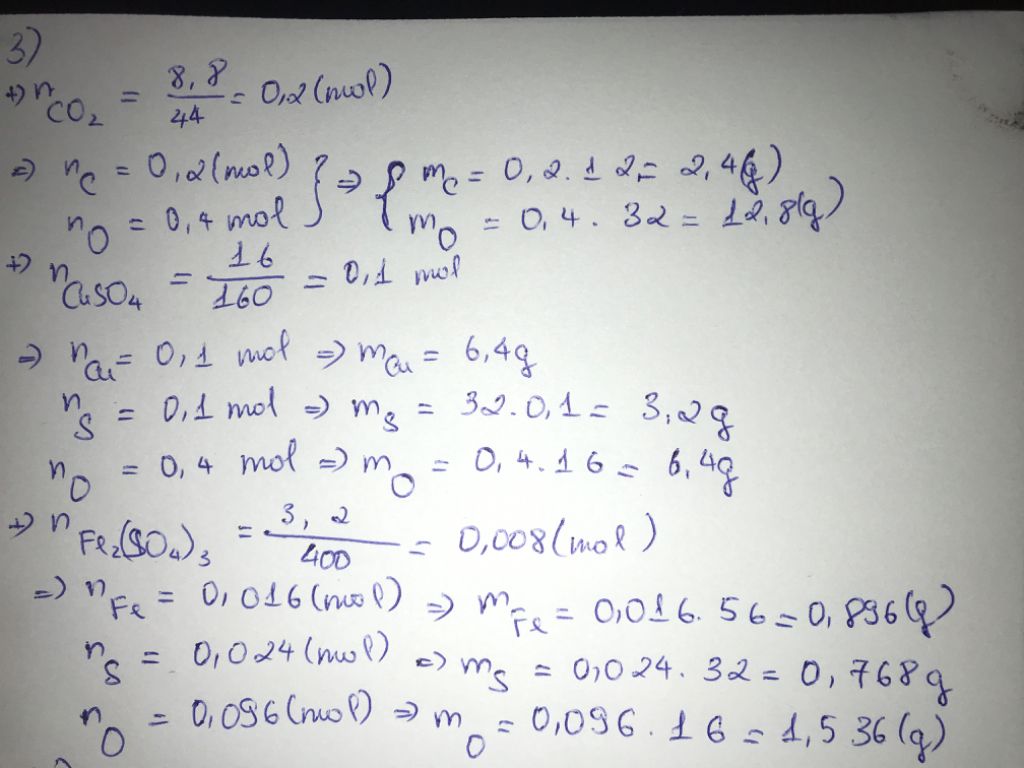 3)
+) n CO₂ = 8,8/44 = 0,2 (mol)
=> n C = 0,2 (mol) } => { m C = 0,2.12 = 2,4(g)
n O = 0,4 mol } { m O = 0,4.32 = 12,8(g)
+) n CuSO₄ = 16/160 = 0,1 mol
=> n Cu = 0,1 mol => m Cu = 6,4g
n S = 0,1 mol => m S = 32.0,1 = 3,2g
n O = 0,4 mol => m O = 0,4.16 = 6,4g
+) n Fe₂(SO₄)₃ = 3,2/400 = 0,008 (mol)
=> n Fe = 0,016 (mol) => m Fe = 0,016.56 = 0,896(g)
n S = 0,024 (mol) => m S = 0,024.32 = 0,768g
n O = 0,096 (mol) => m O = 0,096.16 = 1,536(g)